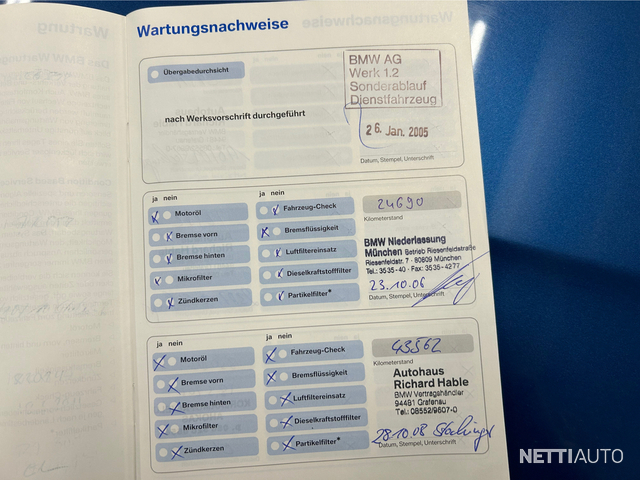 Wartungsnachweise
Übergabedurchsicht
nach Werksvorschrift durchgeführt
BMW AG
Werk 1.2
Sonderablauf
Dienstfahrzeug
26. Jan. 2005
Datum, Stempel, Unterschrift
ja nein
Motoröl
Bremse vorn
Bremse hinten
Mikrofilter
Zündkerzen
ja nein
Fahrzeug-Check
Bremsflüssigkeit
Luftfiltereinsatz
Dieselkraftstofffilter
Partikelfilter*
24690
Kilometerstand
BMW Niederlassung
München Betrieb Riesenfeldstraße
Riesenfeldstr. 7 · 80809 München
Tel.: 3535-40 · Fax: 3535-4277
23.10.06
Datum, Stempel, Unterschrift
ja nein
Motoröl
Bremse vorn
Bremse hinten
Mikrofilter
Zündkerzen
ja nein
Fahrzeug-Check
Bremsflüssigkeit
Luftfiltereinsatz
Dieselkraftstofffilter
Partikelfilter*
43562
Kilometerstand
Autohaus
Richard Hable
BMW Vertragshändler
94481 Grafenau
Tel.: 08552/9607-0
28.10.08
Datum, Stempel, Unterschrift
NETTIAUTO